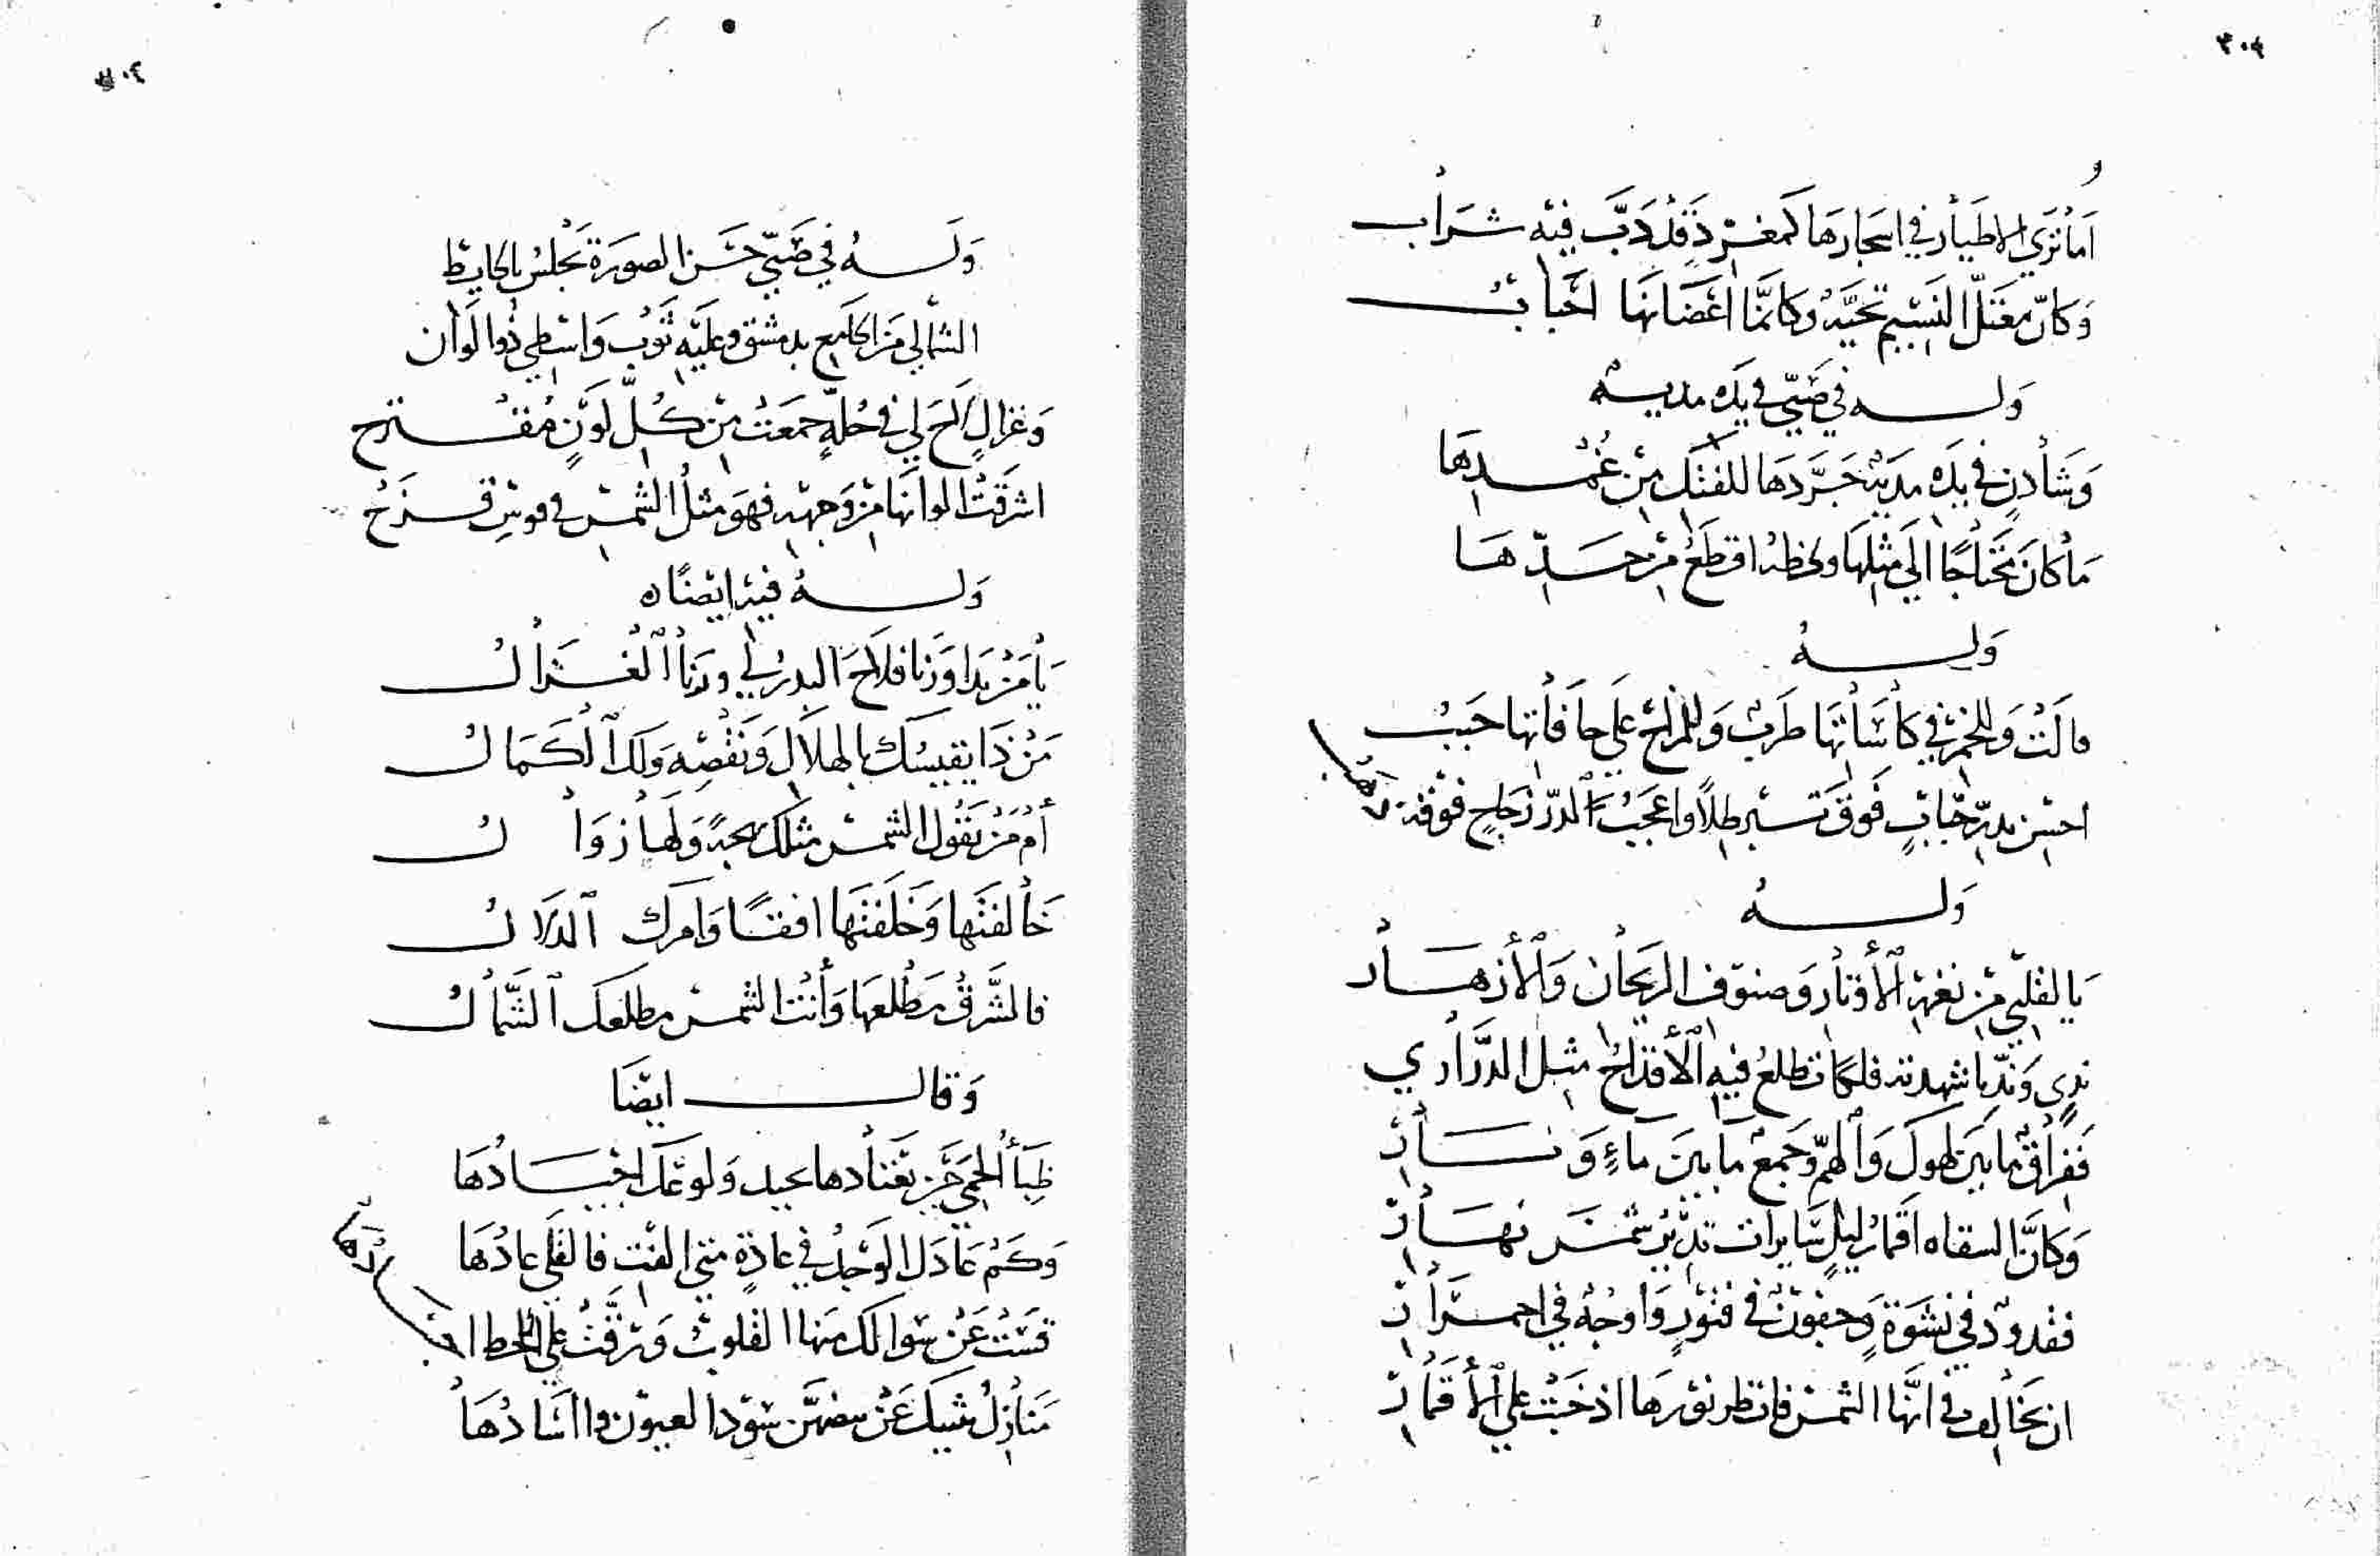 ٣٠٣
أما ترى الاطيار في اشجارها كمغرد قد دب فيه شراب
وكأن معتل النسيم تحية وكانما اغصانها احباب
وله في صبي في يده مدية
وشادن في يده مدية جردها للفتك من غمدها
ما كان محتاجا الى مثلها ولحظه اقطع من حدها
وله
مالت وللخمر في كاساتها طرب وللمزاج على حافاتها حبب
احسن بدر حباب فوق تبر طلا واعجب لدر زجاج فوقه
وله
يا لقلبي من نغمة الأوتار وصنوف الريحان والأزهار
ندي شهدته فلكا تطلع فيه الأقداح مثل الدراري
ففراق ما بين لهوك والهم وجمع ما بين ماء ونار
وكأن السقاه اقمار ليل سايرات تدير شمس نهار
فقدود في نشوة وجفون في فتور واوجه في احمرار
ان تخالف في انها الشمس فانظر نورها اذ خبت على الأقمار
٣٠٤
وله في صبي حسن الصورة يجلس بالحايط
الشمالي من الجامع بدمشق وعليه ثوب واسطي ذو الوان
وغزال لاح لي في حلة جمعت من كل لون مقترح
اشرقت الوانها من وجهه فهو مثل الشمس في قوس قزح
وله فيه ايضًا ه
يا من بدا ورنا فلاح البدر لي ورنا الغزال
من ذا يقيسك بالهلال ونقصه ولك الكمال
أم من يقول الشمس مثلك بهجة ولها زوال
خالفتها وخلفتها افقا وامرك الدلال
فالشرق مطلعها وأنت الشمس مطلعك الشمال
وقال ايضا
ظباء الحمى حين تعتادها عيد ولو عمك اجيادها
وكم عادل الوجد في غادة متى الفت فالقلى عادها
قست عن سوالك منها القلوب ورقت على اللحظ اجسادها
منازل تنبيك عن بيضهن سود العيون واسادها